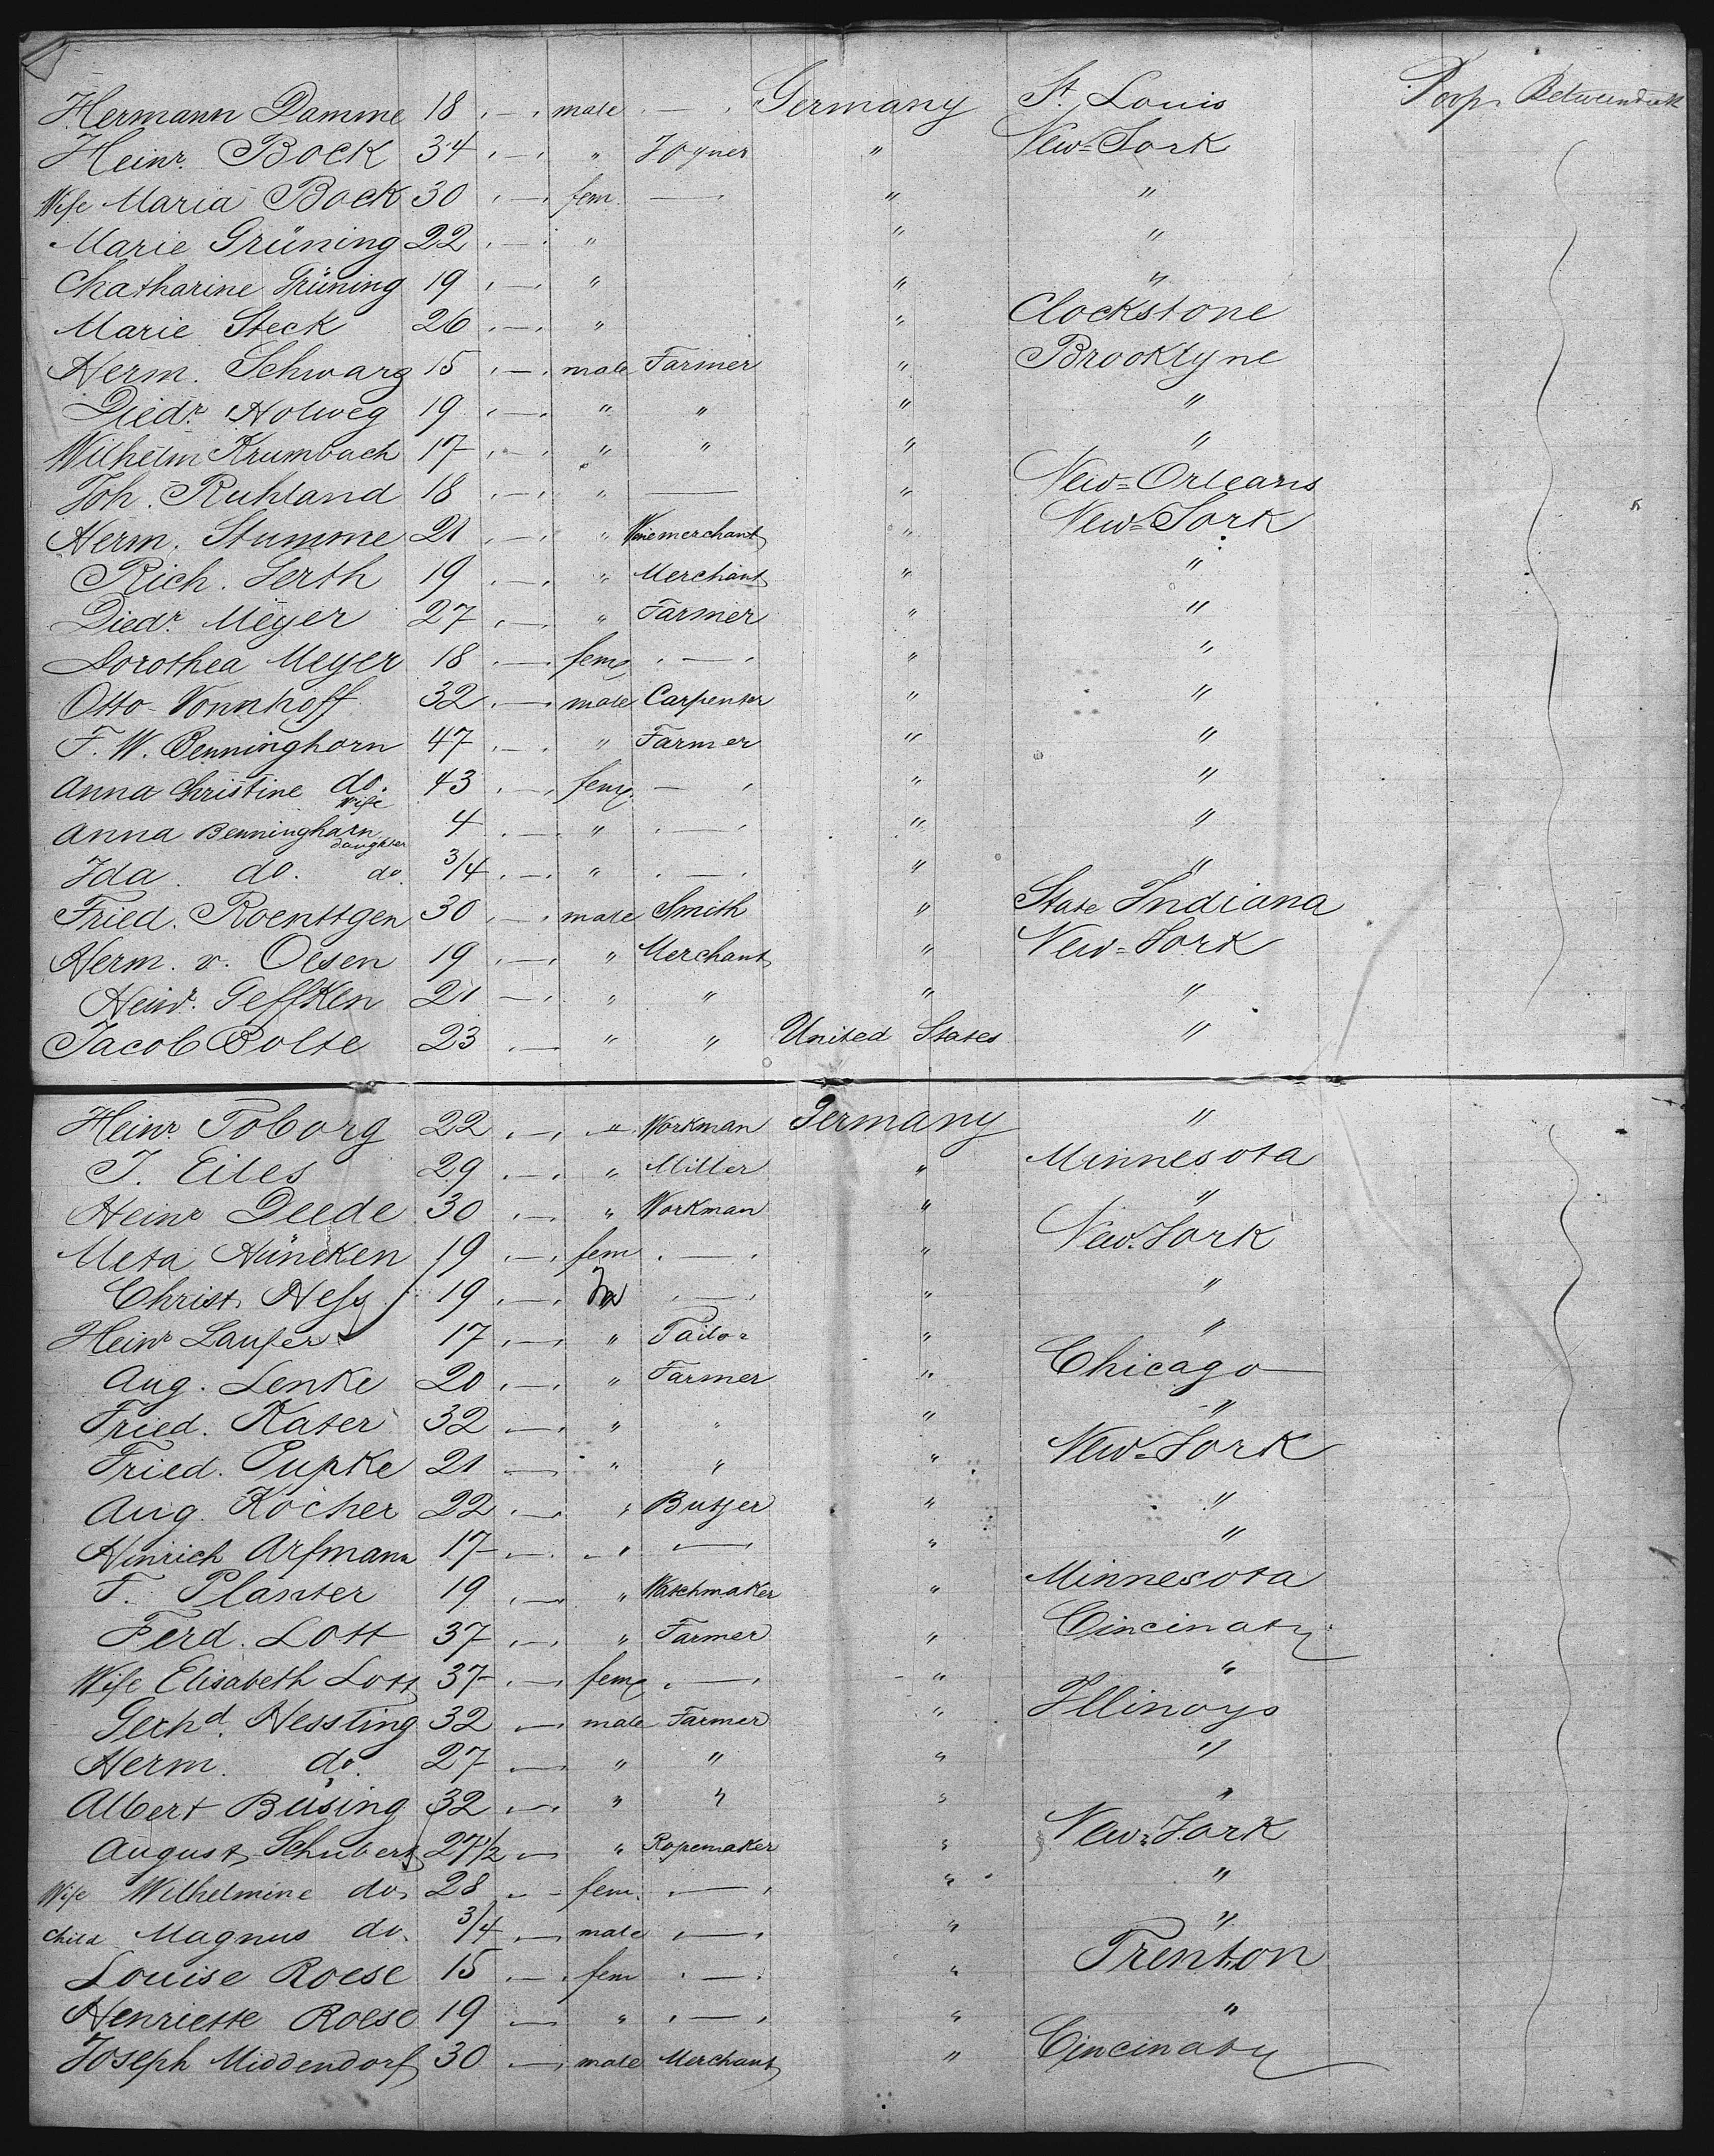 Hermann Damme 18 " — " male — " Germany St. Louis Poop Betweendeck
Heinr. Bock 34 " — " " Joyner " New-York
Wife Maria Bock 30 " — " fem. — " " "
Marie Grüning 22 " — " " " "
Chatharine Grüning 19 " — " " " "
Marie Steck 26 " — " " " Clockstone
Herm. Schwarz 15 " — " male Farmer " Brooklyne
Diedr. Holweg 19 " — " " " " "
Wilhelm Krumbach 17 " — " " " " "
Joh. Ruhland 18 " — " " — " New-Orleans
Herm. Stumme 21 " — " " Winemerchant " New-York
Rich. Serth 19 " — " " Merchant " "
Diedr. Meyer 27 " — " " Farmer " "
Dorothea Meyer 18 " — " fem " — " " "
Otto Vonnhoff 32 " — " male Carpenter " "
F. W. Benninghorn 47 " — " " Farmer " "
Anna Christine do. Wife 43 " — " fem — " " "
Anna Benninghorn daughter 4 " — " " " — " " "
Ida do. do. 3/4 " — " " " — " " "
Fried. Roenttgen 30 " — " male Smith " State Indiana
Herm. v. Oesen 19 " — " " Merchant " New-York
Heinr. Geffken 21 — " " " " "
Jacob Bolte 23 " — " " United States "
Heinr. Toborg 22 " — " " Workman Germany "
J. Eiles 29 " — " " Miller " Minnesota
Heinr. Deede 30 " — " " Workman " "
Meta Hüneken 19 " — " fem " — " " New-York
Christ. Hess 19 " — " " — " " "
Heinr. Laufer 17 " — " " Tailor " "
Aug. Lenke 20 " — " " Farmer " Chicago
Fried. Kater 32 " — " " " " "
Fried. Pupke 21 — " " " New-York
Aug. Kocher 22 " — " " Butjer " "
Hinrich Arfmann 17 " — " " — " " "
F. Planter 19 " — " Watchmaker " Minnesota
Ferd. Lott 37 " — " " Farmer " Cincinaty
Wife Elisabeth Lott 37 " — " fem " — " " "
Gerhd. Hessling 32 " — " male Farmer " Illinoys
Herm. do. 27 " — " " " " "
Albert Büsing 32 " — " " " " "
August Schubert 27 1/2 " — " Ropemaker " New-York
Wife Wilhelmine do. 28 " — fem. " — " " "
Child Magnus do. 3/4 " — " male " — " " "
Louise Roese 15 " — " fem " — " " Trenton
Henriette Roese 19 " — " " — " " "
Joseph Middendorf 30 " — " male Merchant " Cincinaty